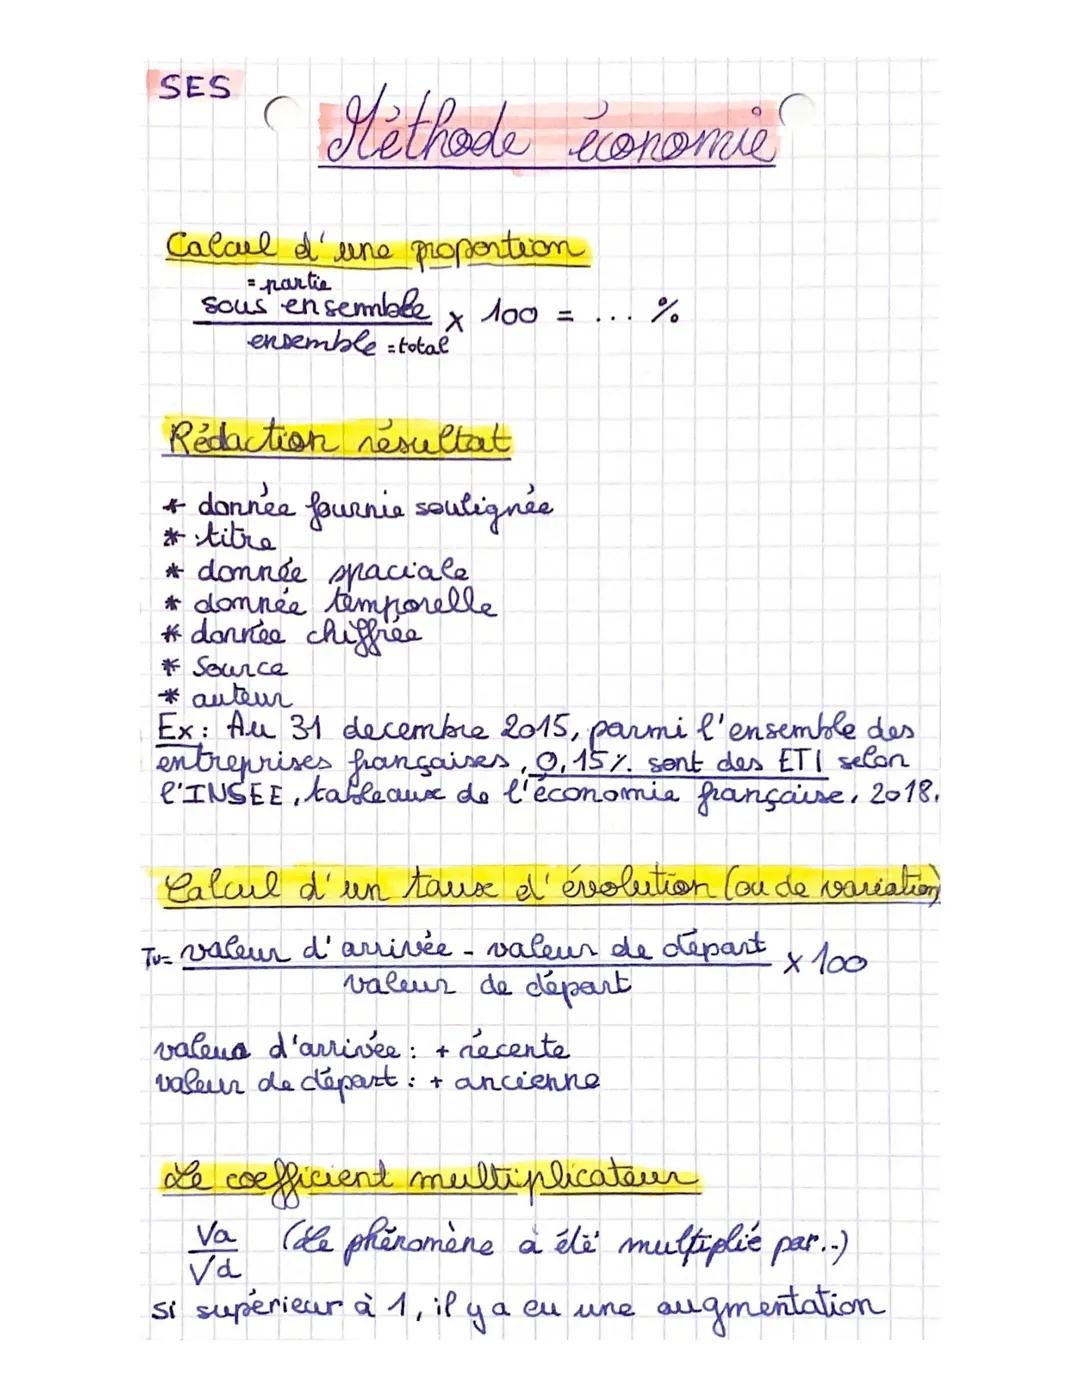 SES
Méthode économie
Calcul d'une proportion
= partie
sous ensemble
x 100 = ... %
ensemble = total
Rédaction résultat
* donnée fournie soulignée
* titre
* donnée spaciale
* donnée temporelle
* donnée chiffrée
* Source
* auteur
Ex : Au 31 decembre 2015, parmi l'ensemble des
entreprises françaises, 0,15% sont des ETI selon
l'INSEE, tableaux de l'économie française, 2018.
Calcul d'un taux d'évolution (ou de variation)
Tv= valeur d'arrivée - valeur de départ x 100
valeur de départ
valeur d'arrivée : + récente
valeur de départ : + ancienne
Le coefficient multiplicateur
Va (Le phénomène a été multiplié par..)
Vd
si supérieur à 1, il y a eu une augmentation